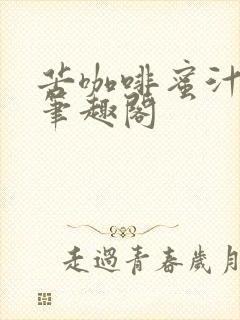 苦咖啡蜜汁
筆趣閣
走過青春歲月